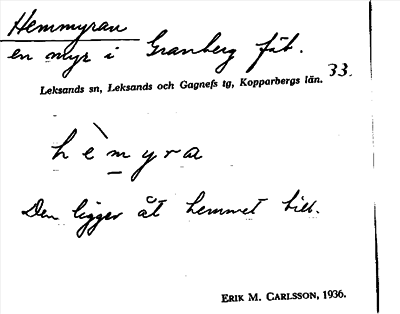 Hemmyran
en myr i Granberg fäb.
Leksands sn, Leksands och Gagnefs tg, Kopparbergs län. 33.
hèmyra
Den ligger åt hemmet till.
ERIK M. CARLSSON, 1936.